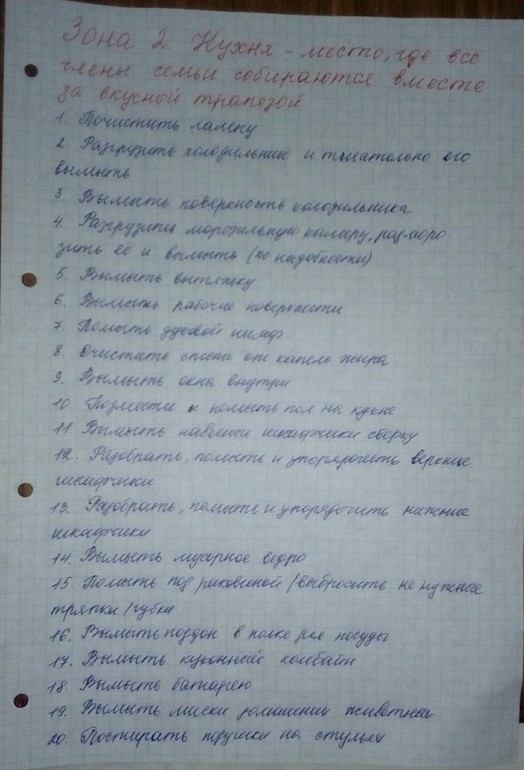 Зона 2 Кухня – место, где все
члены семьи собираются вместе
за вкусной трапезой
1. Почистить лампу
2. Разгрузить холодильник и тщательно его
вымыть
3 Вымыть поверхность холодильника
4. Разгрузить морозильную камеру, размора
зить её и вымыть (по надобности)
5. Вымыть вытяжку
6. Вымыть рабочие поверхности
7. Помыть духовой шкаф
8. Очистить стены от капель жира
9. Вымыть окна внутри
10 Подмести и помыть пол на кухне
11 Вымыть навесные шкафчики сверху
12. Разобрать, помыть и упорядочить верхние
шкафчики
13. Разобрать, помыть и упорядочить нижние
шкафчики
14. Вымыть мусорное ведро
15. Помыть под раковиной /выбросить не нужные
тряпки/губки
16. Вымыть поддон в полке для посуды
17. Вымыть кухонный комбайн
18. Вымыть батарею
19. Вымыть миски домашних животных
20. Постирать подушки на стульях